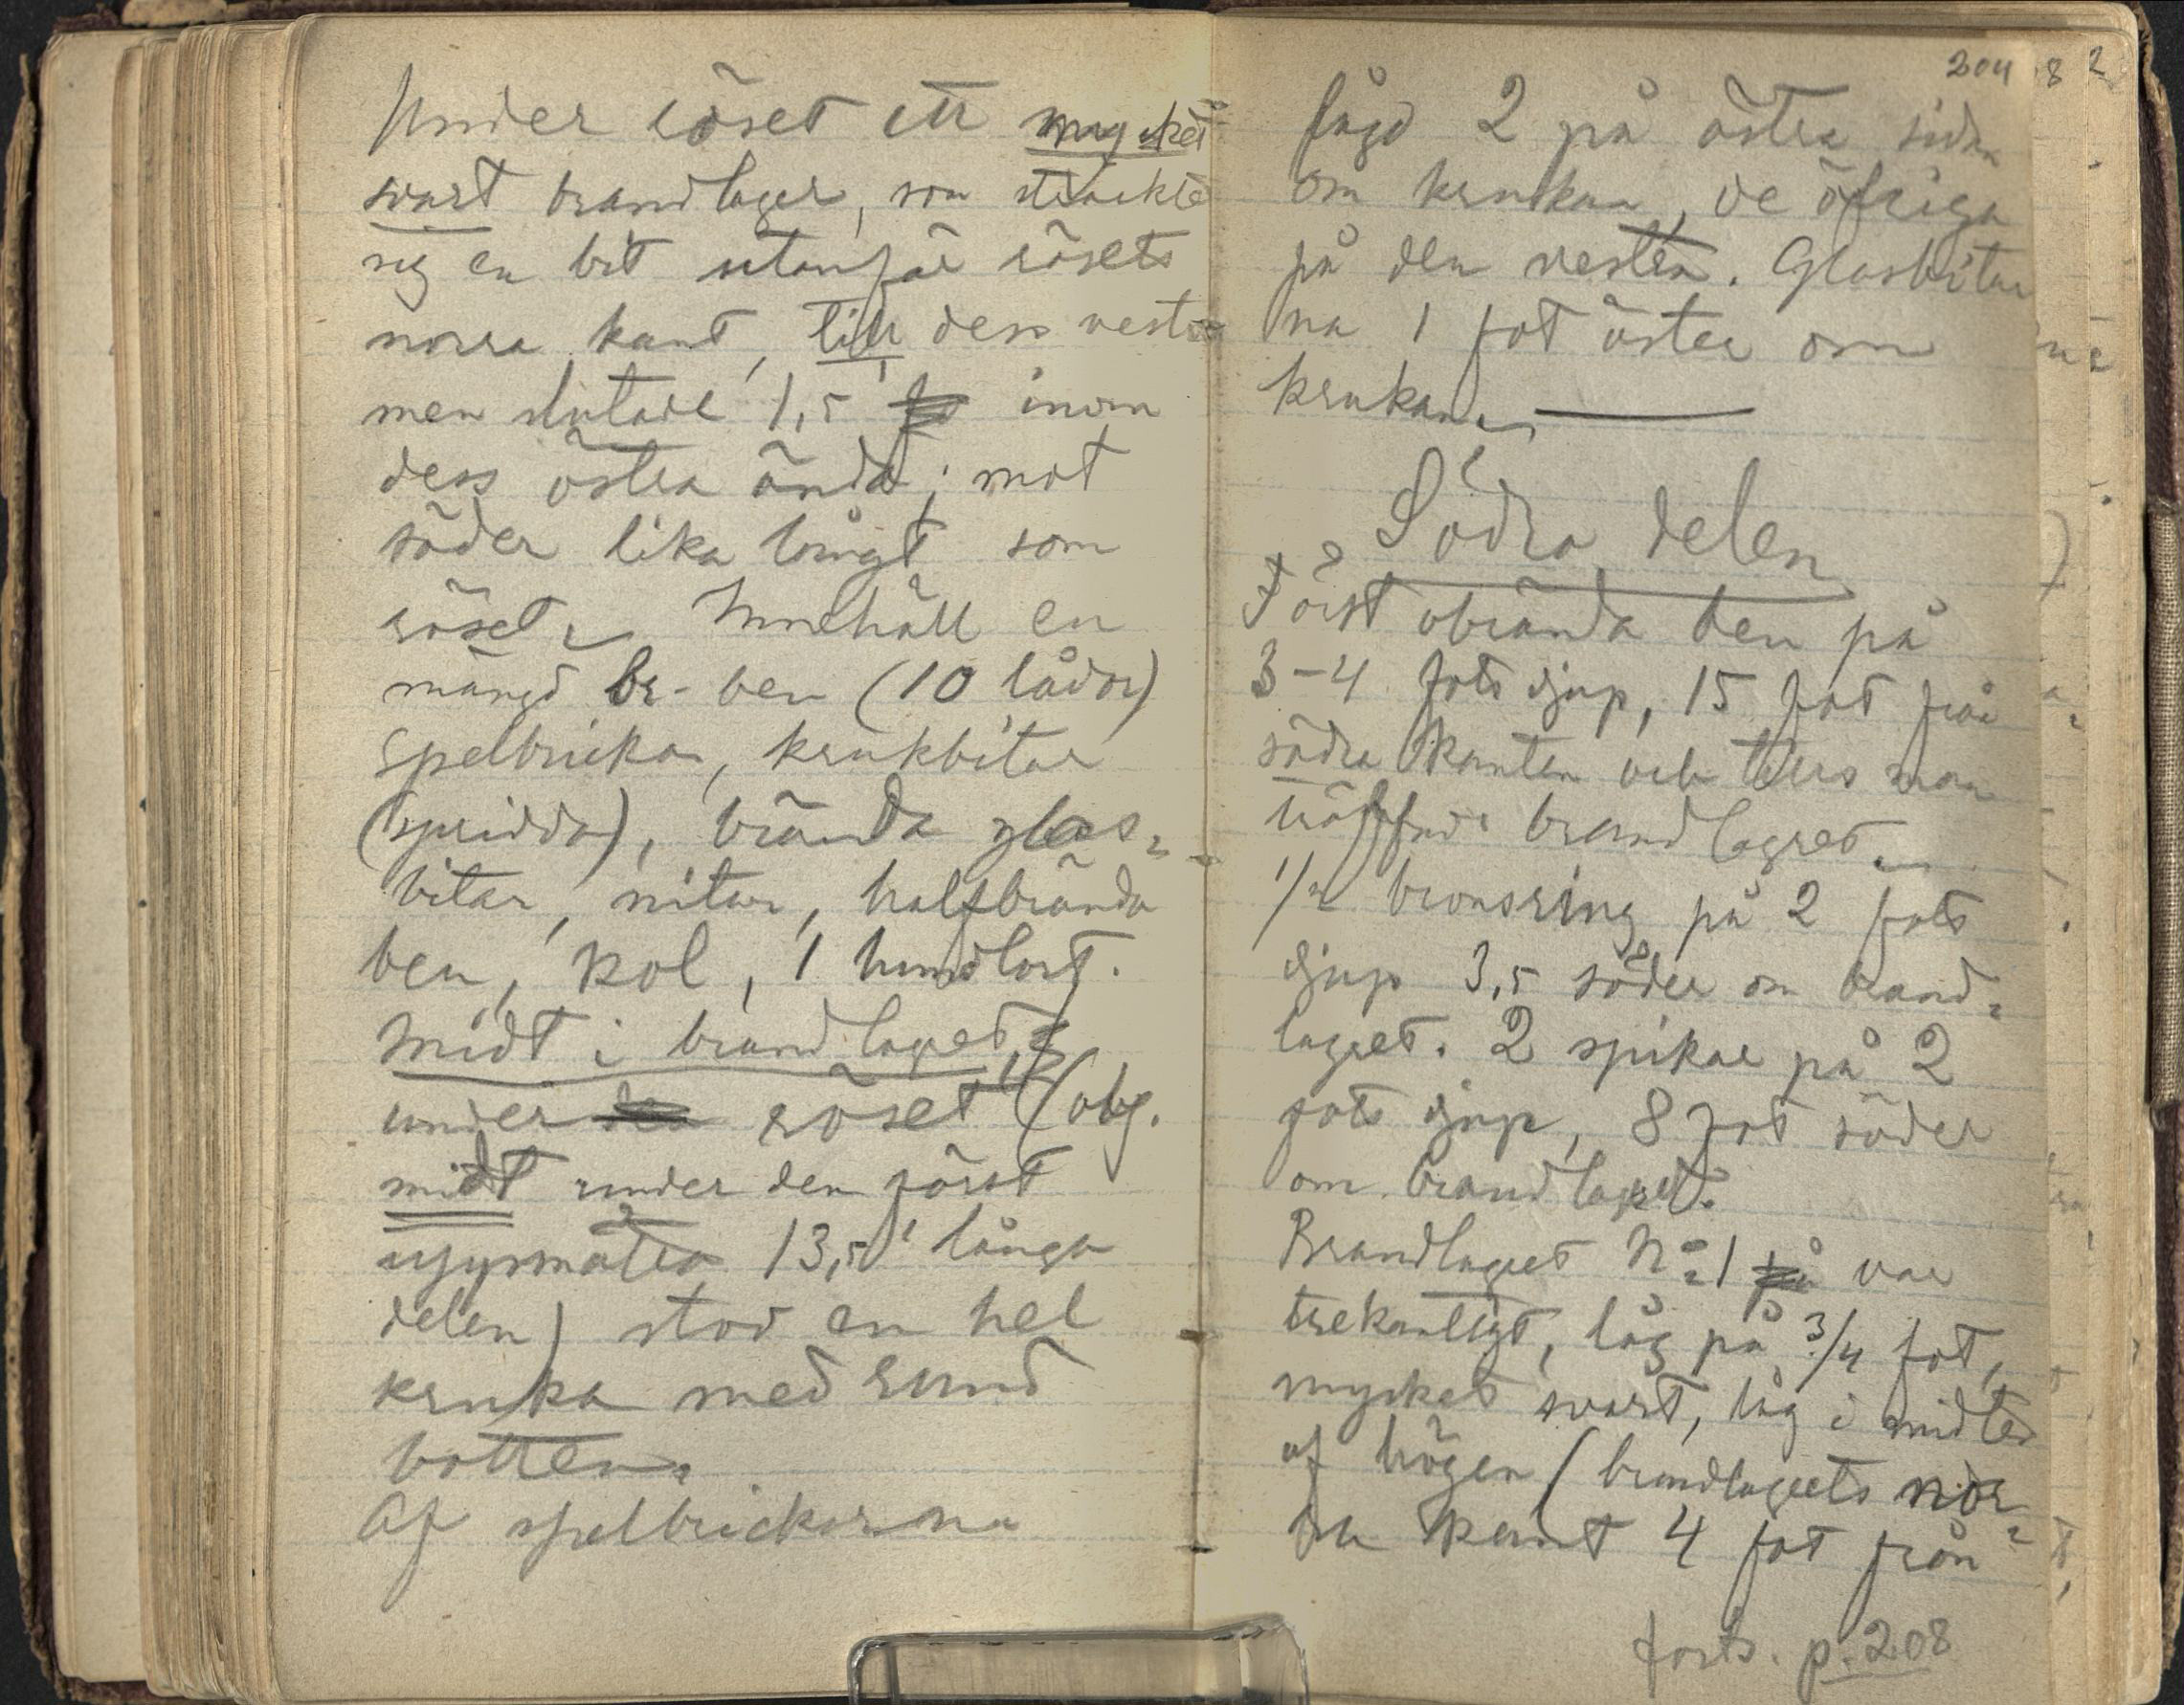 Under röset ett mycket
svart brandlager, som sträckte
sig en bit utanför rösets
norra kant, till dess vestra
men slutade 1,5 fo inom
dess östra ända; mot
söder lika långt som
röset. Innehåll en
mängd br. ben (10 lådor)
spelbrickor, krukbitar
(spridda), brända glas-
bitar, nitar, halfbrända
ben, kol, 1 hundtand.
Midt i brandlagret,
under röset (obs.
midt under den först
uppmätta 13,5' långa
delen) stod en hel
kruka med rund
botten.
Af spelbrickorna
204
8 2
lågo 2 på östra sidan
om krukan, de öfriga
på den vestra. Glasbitar
na 1 fot öster om
krukan. —
Södra delen
Först obrända ben på
3-4 fots djup, 15 fot från
södra kanten och tills man
träffade brandlagret.
1/2 bronsring på 2 fots
djup 3,5 söder om brand-
lagret. 2 spikar på 2
fots djup, 8 fot söder
om brandlagret.
Brandlagret No 1 på var
trekantigt, låg på 3/4 fot,
mycket svart, låg i midten
af högen (brandlagrets nor-
ra kant 4 fot från
forts. p. 208